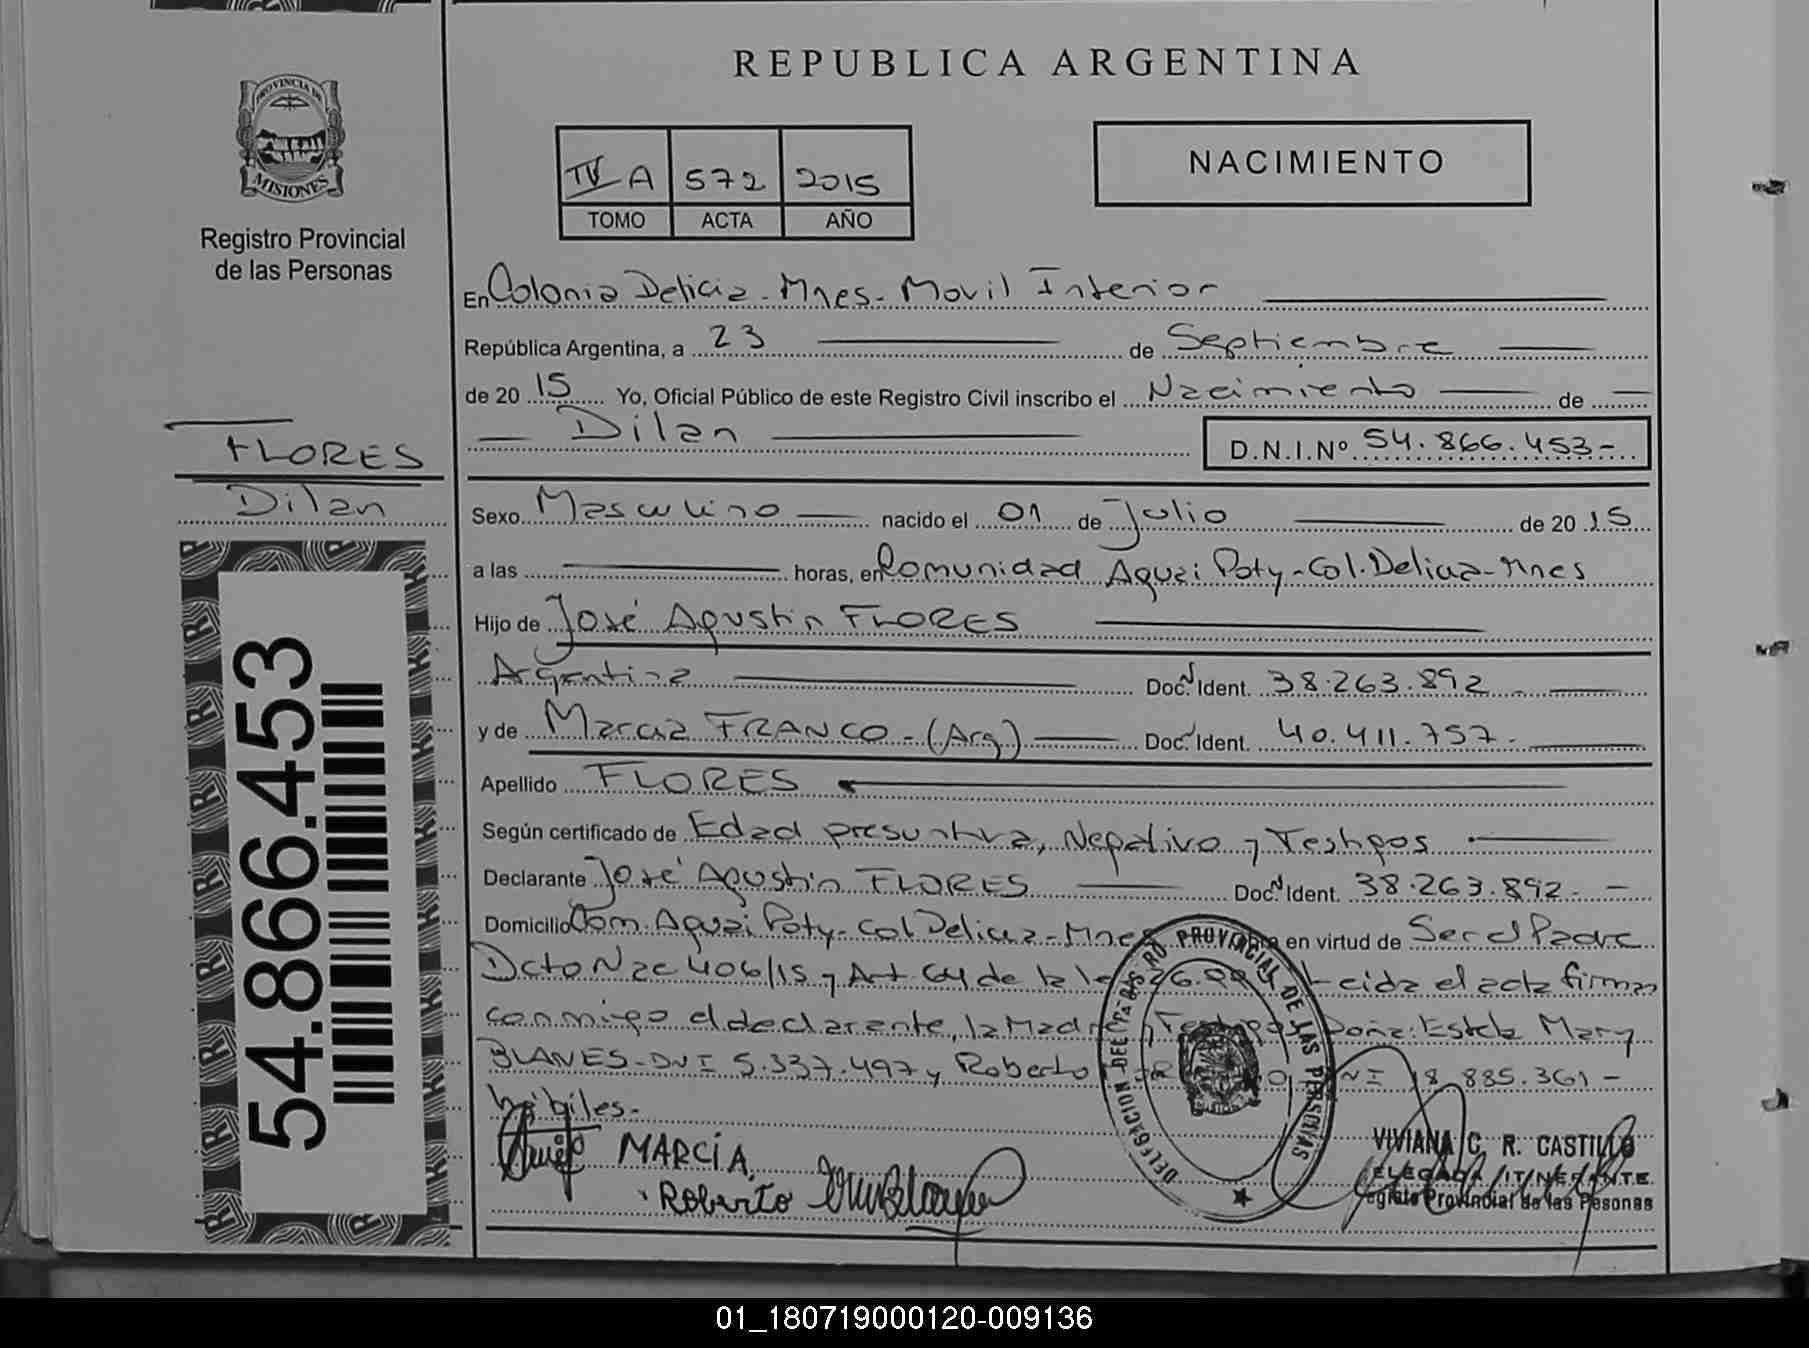 REPUBLICA ARGENTINA
PROVINCIA DE
MISIONES
Registro Provincial
de las Personas
IV A 572 2015
TOMO ACTA AÑO
NACIMIENTO
En Colonia Delicia - Mnes - Movil Interior
República Argentina, a 23 de Septiembre
de 20 15 Yo, Oficial Público de este Registro Civil inscribo el Nacimiento de
Dilan
D.N.I.Nº 54.866.453-
FLORES
Dilan
Sexo Masculino nacido el 01 de Julio de 20 15
a las horas, en Comunidad Aguai Poty - Col. Delicia - Mnes
Hijo de José Agustin FLORES
Argentina Doc. Ident. 38.263.892
y de Marcia FRANCO - (Arg.) Doc. Ident. 40.411.757.
Apellido FLORES
Según certificado de Edad presuntiva, Negativo y Testigos
Declarante José Agustin FLORES Doc. Ident. 38.263.892.-
Domicilio Com. Aguai Poty - Col Delicia - Mnes en virtud de Ser el Padre
Dcto Nac 406/15 y Art 64 de la 26.994 el acta firman
conmigo el declarante, la Madre y Testigos Doña: Estela Mary
BLANES - DNI 5.337.497 y Roberto DNI 18.885.361 -
hábiles.-
MARCIA
Roberto
DELEGACION DEL REGISTRO PROVINCIAL DE LAS PERSONAS
VIVIANA C. R. CASTILLO
DELEGADA ITINERANTE
Registro Provincial de las Pesonas
54.866.453
01_180719000120-009136